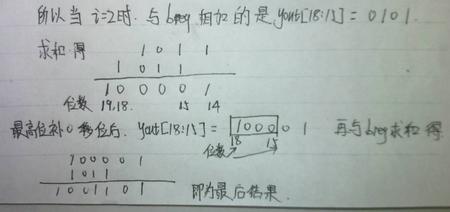 所以当 i=2时. 与breg相加的是yout[18:15] = 0101.
求和得 1 0 1 1 1
1 0 1 1
1 0 0 0 0 1
位数 19.18. 15 14
最高位补0移位后. yout[18:15] = 1000 0 1 再与breg求和得
位数 18 15
1 0 0 0 0 1
1 0 1 1
1 0 0 1 1 0 1 即为最后结果.